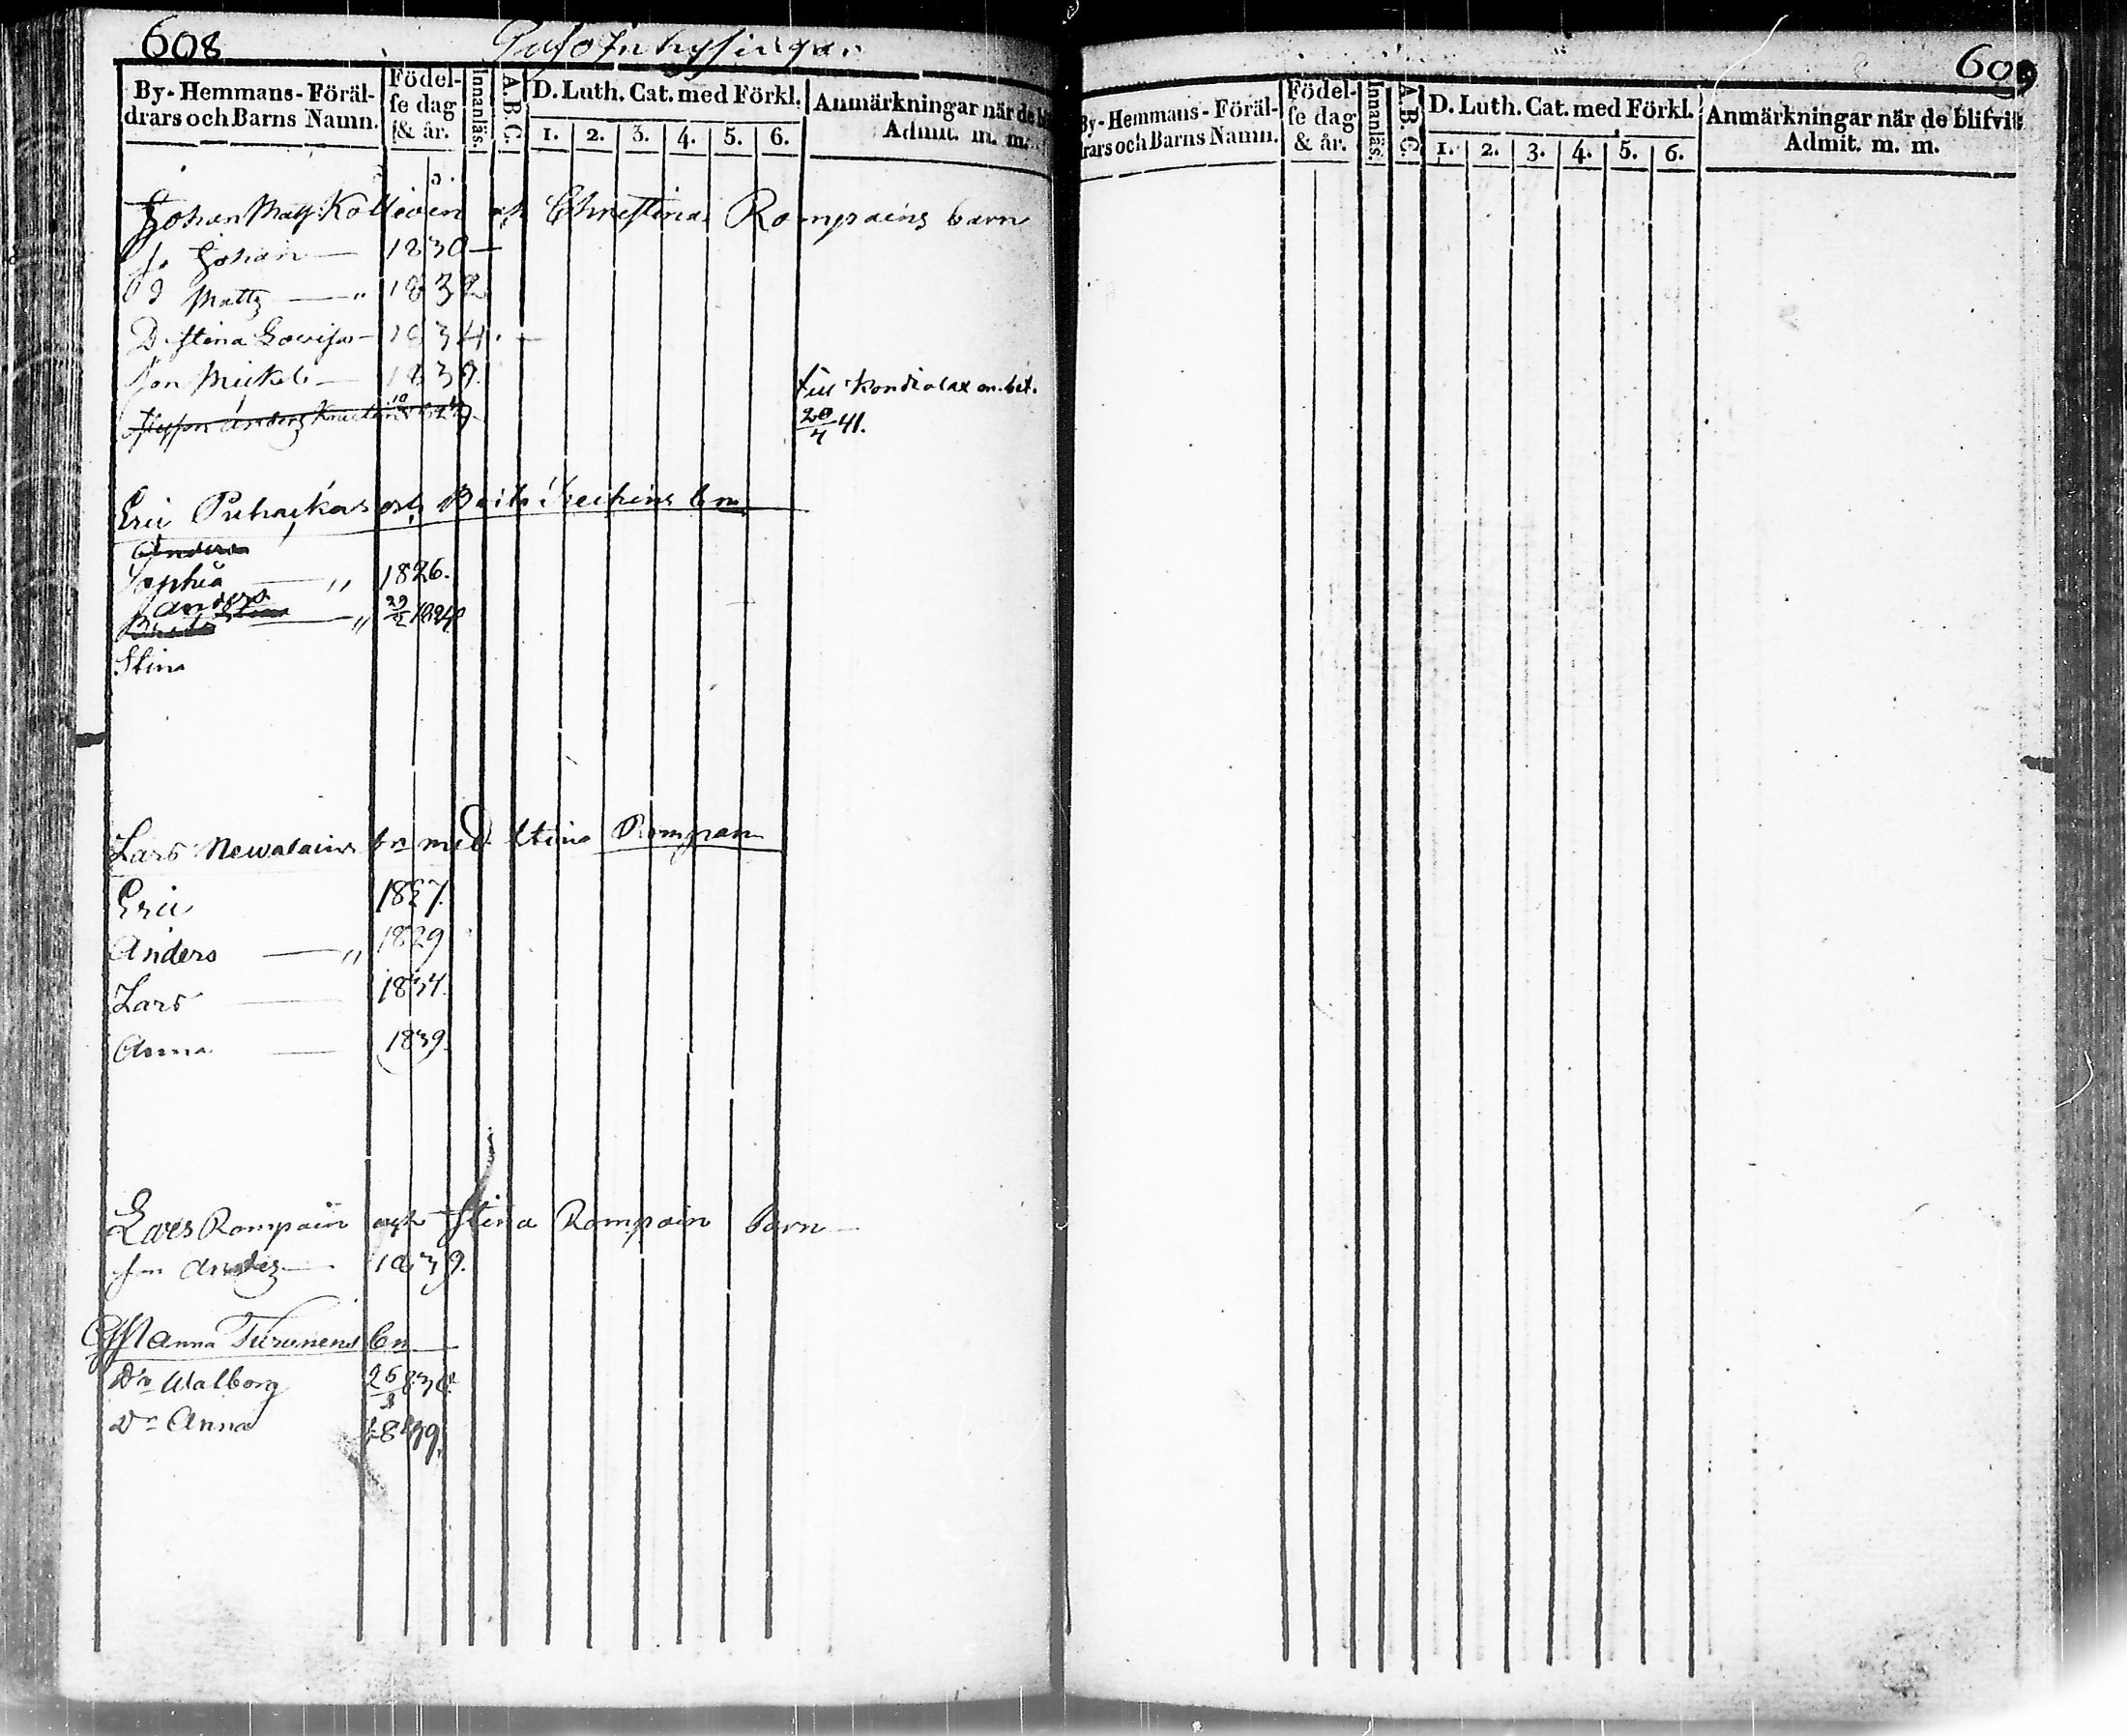 608
By-Hemmans-Föräl-
drars och Barns Namn.
Födel-
se dag
& år.
Innanläs.
A.B.C.
D. Luth. Cat. med Förkl.
1. 2. 3. 4. 5. 6.
Anmärkningar när de
Admit. m. m.
Johan Matts. och Christina Rompains barn
S. Johan 1830
Mattz 1832
D. Stina Lovisa 1834.
Son Mickel
till Kondiolax
20/4 41.
Eric och
Anders
Sophia 1826.
Anders
Stina
Lars Newalains bn med Stina Rompain
Eric 1827.
Anders 1829
Lars 1834.
Anna 1839.
Lars Rompain och Stina Rompain Barn
Son Anders 1839.
Anna Turunens bn
Dr Walborg
Dr Anna 1839.
609
By-Hemmans-Föräl-
rars och Barns Namn.
Födel-
se dag
& år.
Innanläs.
A.B.C.
D. Luth. Cat. med Förkl.
1. 2. 3. 4. 5. 6.
Anmärkningar när de blifvit
Admit. m. m.